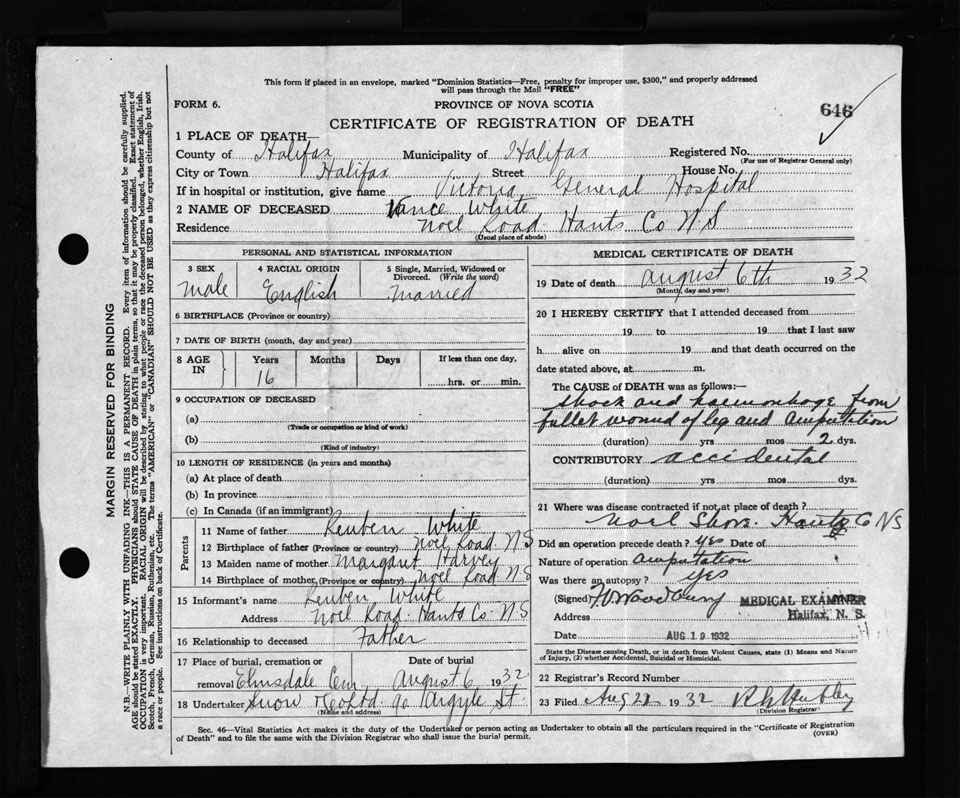 This form if placed in an envelope, marked "Dominion Statistics—Free, penalty for improper use, $300," and properly addressed
will pass through the Mail "FREE"
FORM 6.
PROVINCE OF NOVA SCOTIA
646
CERTIFICATE OF REGISTRATION OF DEATH
1 PLACE OF DEATH—
County of Halifax Municipality of Halifax Registered No.
(For use of Registrar General only)
City or Town Halifax Street House No.
If in hospital or institution, give name Victoria General Hospital
2 NAME OF DECEASED Vance White
Residence Noel Road Hants Co N S
(Usual place of abode)
PERSONAL AND STATISTICAL INFORMATION
3 SEX 4 RACIAL ORIGIN 5 Single, Married, Widowed or
Divorced. (Write the word)
Male English Married
6 BIRTHPLACE (Province or country)
7 DATE OF BIRTH (month, day and year)
8 AGE IN Years Months Days If less than one day,
16 hrs. or min.
9 OCCUPATION OF DECEASED
(a)
(Trade or occupation or kind of work)
(b)
(Kind of industry)
10 LENGTH OF RESIDENCE (in years and months)
(a) At place of death
(b) In province
(c) In Canada (if an immigrant)
Parents
11 Name of father Reuben White
12 Birthplace of father (Province or country) Noel Road. N S
13 Maiden name of mother Margaret Harvey
14 Birthplace of mother (Province or country) Noel Road N.S
15 Informant's name Reuben White
Address Noel Road. Hants Co. N.S
16 Relationship to deceased Father
17 Place of burial, cremation or removal Date of burial
Elmsdale Cem August 6 1932
18 Undertaker Snow & Co Ltd. 90 Argyle St.
(Name and address)
MEDICAL CERTIFICATE OF DEATH
19 Date of death August 6th 1932
(Month, day and year)
20 I HEREBY CERTIFY that I attended deceased from
19 to 19 that I last saw
h alive on 19 and that death occurred on the
date stated above, at m.
The CAUSE OF DEATH was as follows:—
Shock and haemorrhage from
bullet wound of leg and amputation
(duration) yrs mos 2 dys.
CONTRIBUTORY accidental
(duration) yrs mos dys.
21 Where was disease contracted if not at place of death?
Noel Shore. Hants Co NS
Did an operation precede death? yes Date of
Nature of operation amputation
Was there an autopsy? yes
(Signed) Woodbury MEDICAL EXAMINER
Address Halifax, N. S.
Date AUG 19 1932
State the Disease causing Death, or in death from Violent Causes, state (1) Means and Nature
of Injury, (2) whether Accidental, Suicidal or Homicidal.
22 Registrar's Record Number
23 Filed Aug 21 1932
(Division Registrar)
Sec. 46—Vital Statistics Act makes it the duty of the Undertaker or person acting as Undertaker to obtain all the particulars required in the "Certificate of Registration
of Death" and to file the same with the Division Registrar who shall issue the burial permit.
(OVER)
MARGIN RESERVED FOR BINDING
N.B.—WRITE PLAINLY WITH UNFADING INK—THIS IS A PERMANENT RECORD. Every item of information should be carefully supplied.
AGE should be stated EXACTLY. PHYSICIANS should STATE CAUSE OF DEATH in plain terms, so that it may be properly classified. Exact statement of
OCCUPATION is very important. RACIAL ORIGIN will be described by stating to what people or race the deceased person belonged, whether English, Irish,
Scotch, French, German, Russian, Ruthenian, etc. The terms "AMERICAN" or "CANADIAN" SHOULD NOT BE USED as they express citizenship but not
a race or people. See instructions on back of Certificate.